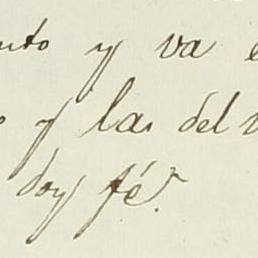 nto y va e
o y las del v
doy fé.